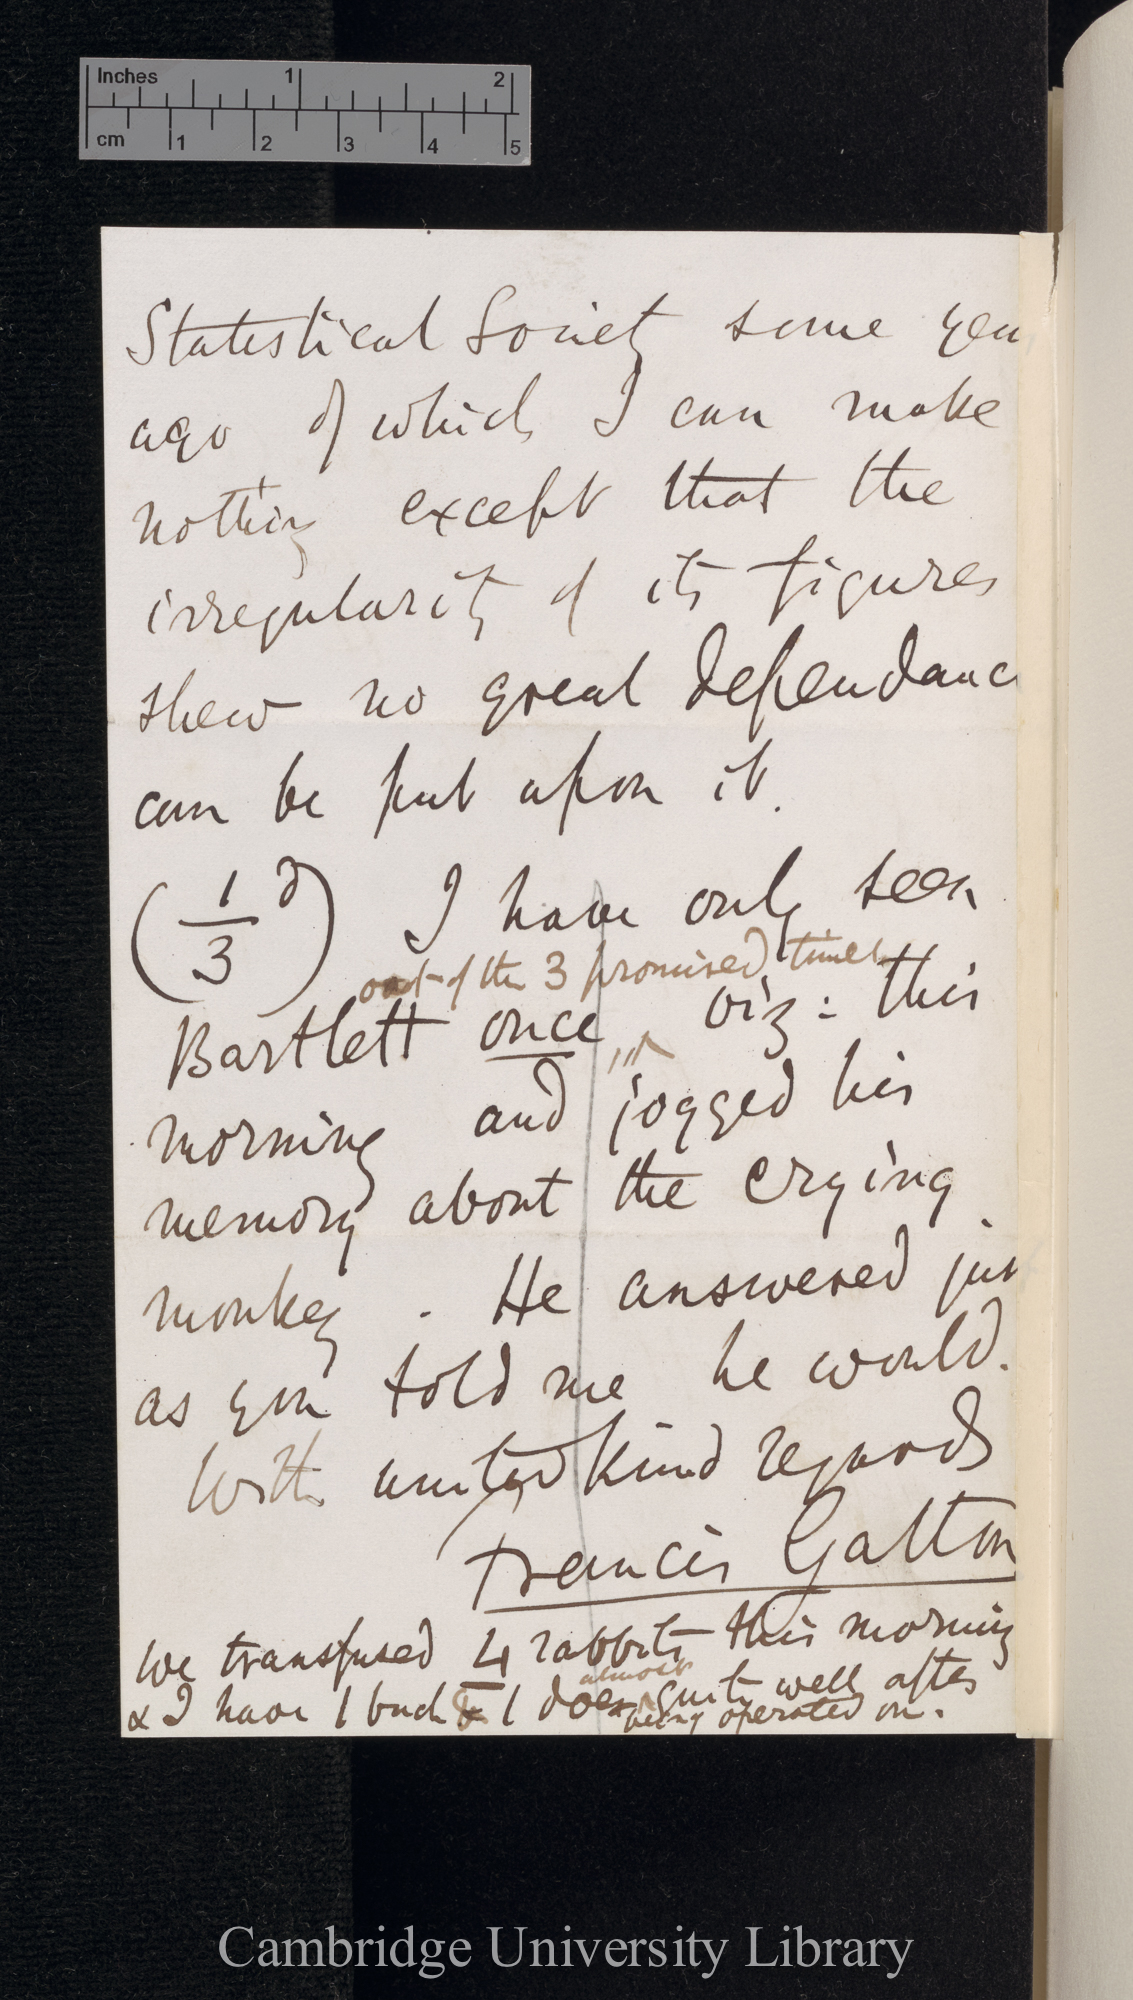 Inches 1 2
cm 1 2 3 4 5
Statistical Society some yea
ago of which I can make
nothing except that the
irregularity of its figures
shew no great dependanc
can be put upon it.
(1/3 d) I have only seen
out of the 3 promised times
Bartlett once viz: this
morning and jogged his
memory about the crying
monkey. He answered jus
as you told me he would.
With united kind regards
Francis Galton
We transfused 4 rabbits this morning
almost
& I have 1 buck & 1 doe quite well after
being operated on.
Cambridge University Library